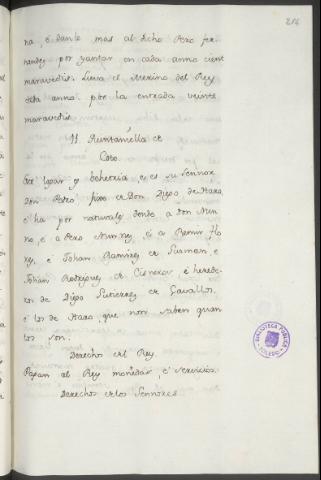 216
na, é danle mas al dicho Pero fer-
nandez por yantar en cada anno cient
maravedis. Lieva el Merino del Rey
cada anno por la entrada veinte
maravedis.
H. Quintaniella de
Coto.
Este lugar es behetria, e es su Sennor
Don Pedro, fijo de Don Diego de Haro
é ha por naturales dende a Don Nun-
no, é a Pero Nunnez, é a Remir Flo
rez, é Johan Ramirez de Guzman, é
Johan Rodriguez de Cisneros, é herede-
ros de Diego Gutierrez de Zavallos,
é los de Haza, que non saben quan
tos son.
Derechos del Rey.
Pagan al Rey monedas, é servicios.
Derechos de los Sennores
BIBLIOTECA PUBLICA
TOLEDO